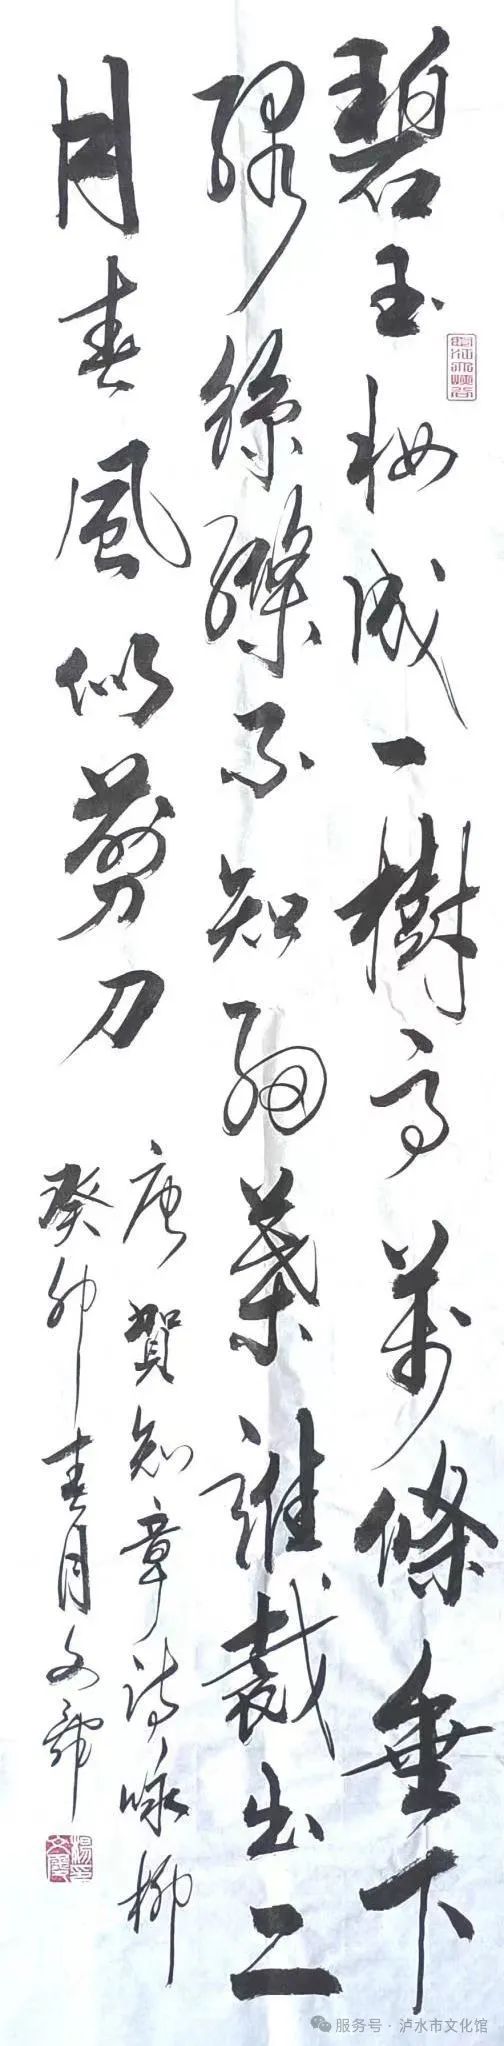 碧玉妝成一樹高萬條垂下
綠絲縧不知細葉誰裁出二
月春風似剪刀
唐賀知章詩咏柳
癸卯春月文
服务号 · 泸水市文化馆